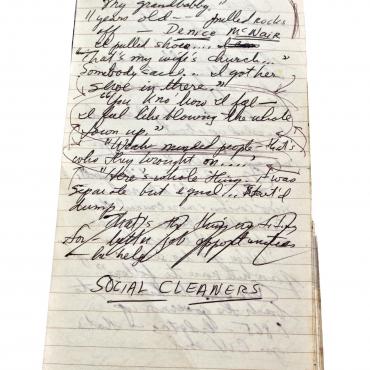 "My grandbaby,"
11 years old -- pulled rocks
off - Denice McNair
I pulled shoe....
"That's my wife's church..."
Somebody said.. I got her
shoe in there."
"You kno how I feel—
I feel like blowing the whole
town up."
"Weak minded people - that's
who they wrought on...."
"Here's whole thing - I was
separate but equal...
dump,
That's the thing
for - better job opportunities
- he help
SOCIAL CLEANERS